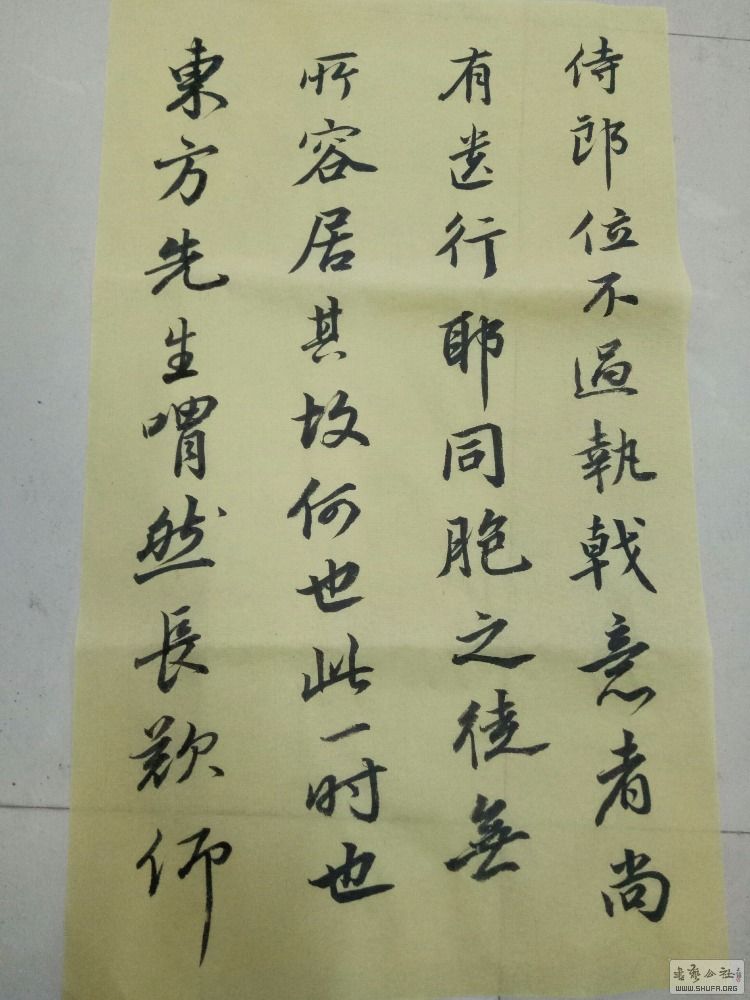 侍郎位不過執戟意者尚
有遺行耶同胞之徒無
所容居其故何也此一时也
東方先生喟然長歎仰
書藝公社
WWW.SHUFA.ORG